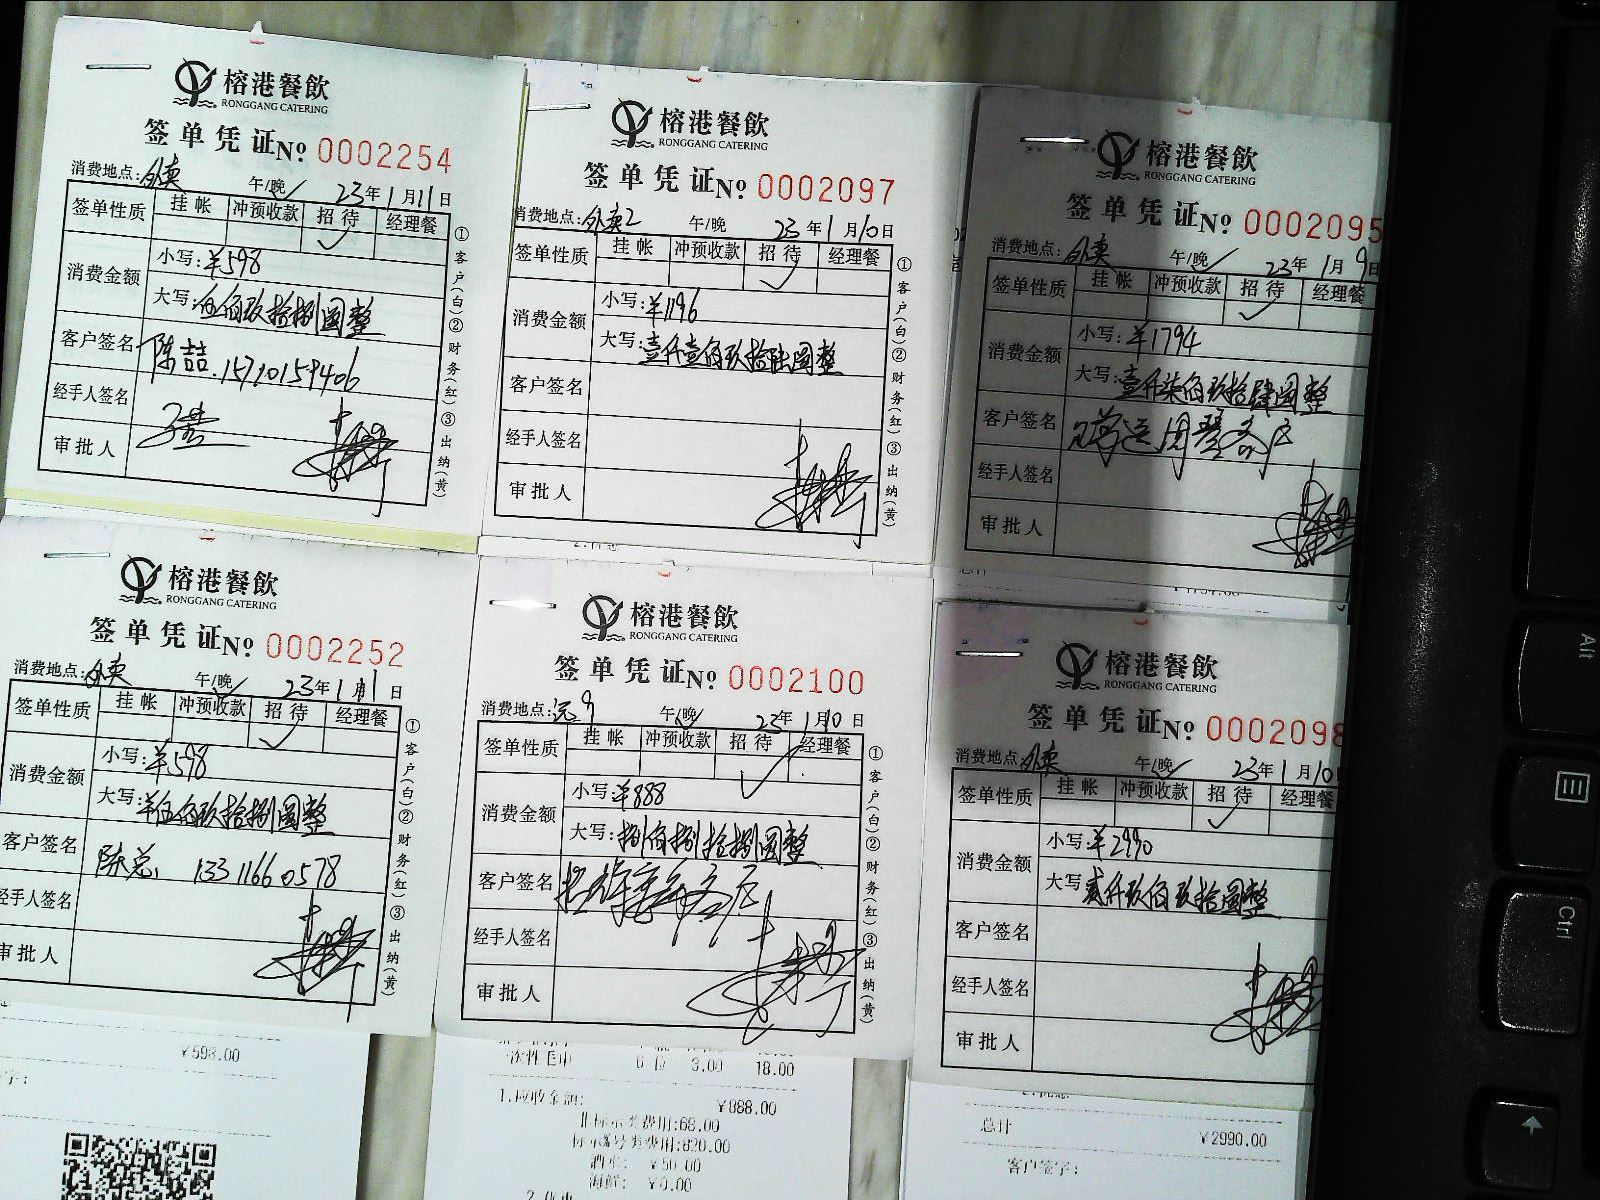 榕港餐飲
RONGGANG CATERING
签单凭证 No 0002254
消费地点:外卖 午/晚 23年1月11日
签单性质 挂帐 冲预收款 招待 经理餐
消费金额 小写:¥598
大写:伍佰玖拾捌圆整
客户签名 陈喆.15710159406
经手人签名
审批人
①客户(白)②财务(红)③出纳(黄)
榕港餐飲
RONGGANG CATERING
签单凭证 No 0002097
消费地点:外卖2 午/晚 23年1月10日
签单性质 挂帐 冲预收款 招待 经理餐
消费金额 小写:¥1196
大写:壹仟壹佰玖拾陆圆整
客户签名
经手人签名
审批人
①客户(白)②财务(红)③出纳(黄)
榕港餐飲
RONGGANG CATERING
签单凭证 No 0002095
消费地点:外卖 午/晚 23年1月9日
签单性质 挂帐 冲预收款 招待 经理餐
消费金额 小写:¥1794
大写:壹仟柒佰玖拾肆圆整
客户签名
经手人签名
审批人
总计
榕港餐飲
RONGGANG CATERING
签单凭证 No 0002252
消费地点:外卖 午/晚 23年1月11日
签单性质 挂帐 冲预收款 招待 经理餐
消费金额 小写:¥598
大写:伍佰玖拾捌圆整
客户签名 陈总, 13311660578
经手人签名
审批人
①客户(白)②财务(红)③出纳(黄)
¥598.00
字:
榕港餐飲
RONGGANG CATERING
签单凭证 No 0002100
消费地点: 午/晚 23年1月10日
签单性质 挂帐 冲预收款 招待 经理餐
消费金额 小写:¥888
大写:捌佰捌拾捌圆整
客户签名
经手人签名
审批人
①客户(白)②财务(红)③出纳(黄)
次性毛巾 6 位 3.00 18.00
1.应收金额: ¥888.00
非标示类费用:68.00
标示编号类费用:820.00
酒水: ¥50.00
海鲜: ¥0.00
榕港餐飲
RONGGANG CATERING
签单凭证 No 0002098
消费地点:外卖 午/晚 23年1月10
签单性质 挂帐 冲预收款 招待 经理餐
消费金额 小写:¥2990
大写 贰仟玖佰玖拾圆整
客户签名
经手人签名
审批人
总计 ¥2990.00
客户签字:
Alt
Ctrl